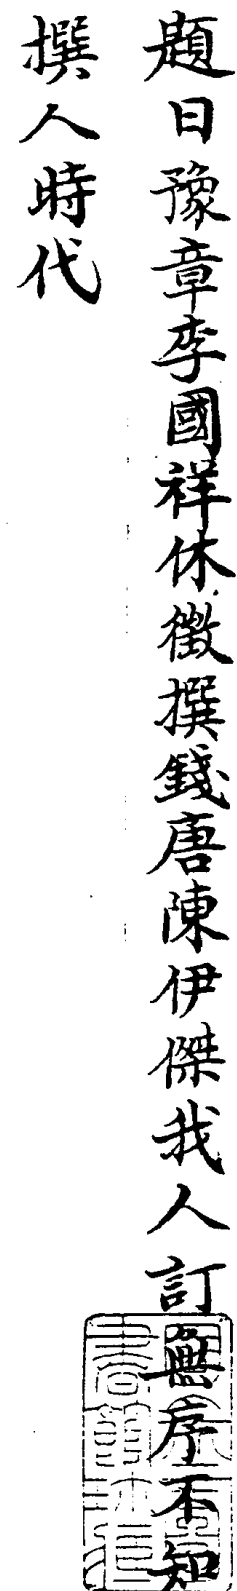 題曰豫章李國祥休徵撰錢唐陳伊傑我人訂無序不知
撰人時代